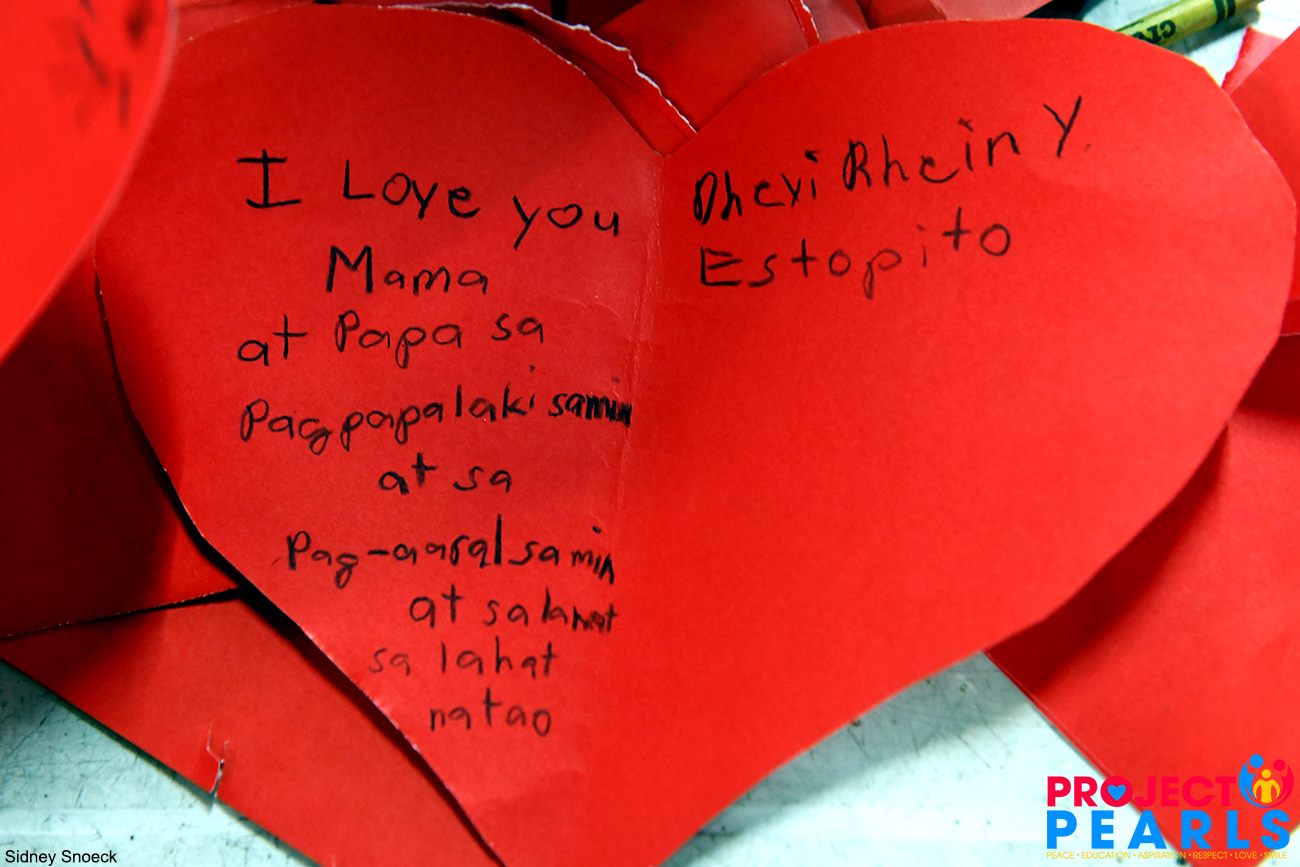 I Love you
Mama
at Papa sa
Pagpapalaki samin
at sa
Pag-aaral samin
at salamat
sa lahat
na tao
Dhexi Rhein Y.
Estopito
Cra
PROJECT
PEARLS
PEACE • EDUCATION • ASPIRATION • RESPECT • LOVE • SMILE
Sidney Snoeck